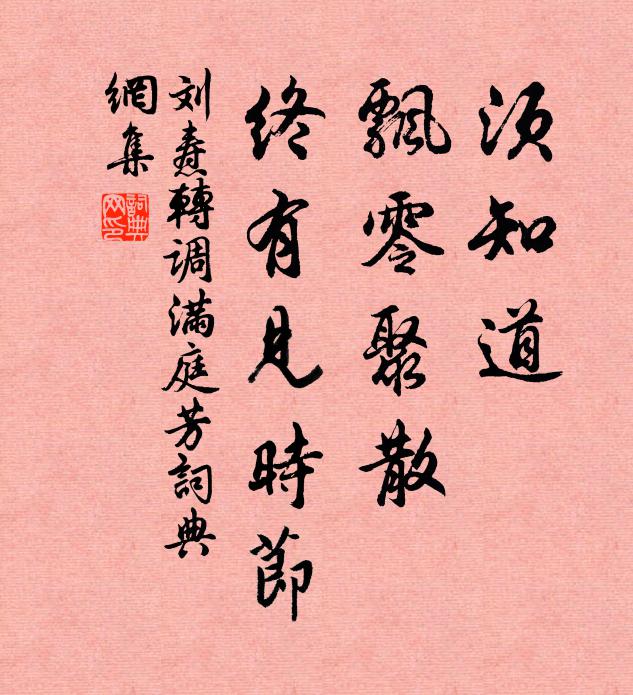 須知道
飄零聚散
終有見時節
刘燾轉調滿庭芳詞典
網集
詞典網印